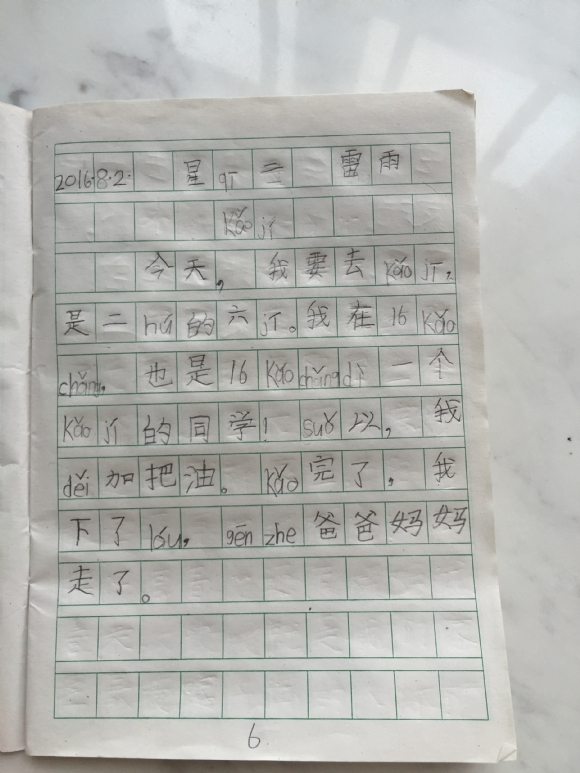 2016.8.2. 星qī二 雷雨
kǎo jí
今天，我要去kǎo jí，
是二hú的六jí。我在16kǎo
chǎng，也是16kǎo chǎng dì一个
kǎo jí的同学！suǒ以，我
děi加把油。kǎo完了，我
下了lóu，gēn zhe爸爸妈妈
走了。
6